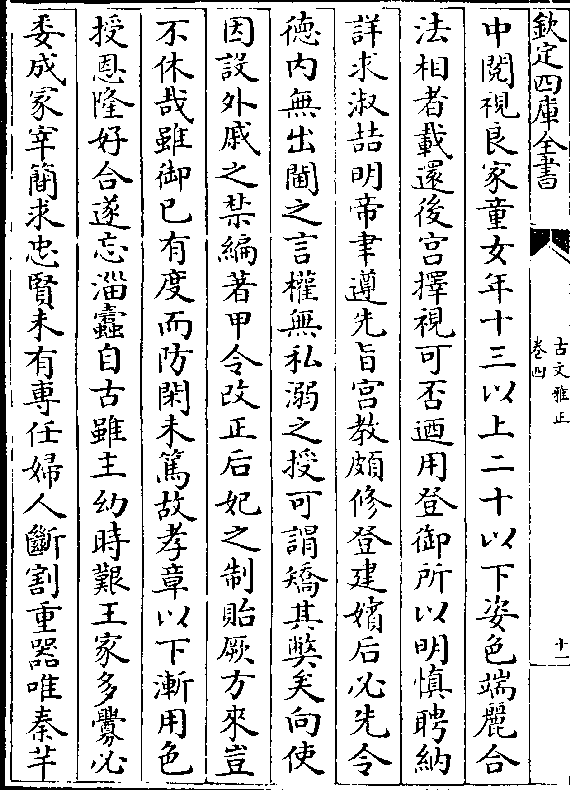 欽定四庫全書
古文雅正
卷四
十一
中閱視良家童女年十三以上二十以下姿色端麗合
法相者載還後宮擇視可否迺用登御所以明慎聘納
詳求淑喆明帝聿遵先旨宮教頗修登建嬪后必先令
德内無出閫之言權無私溺之授可謂矯其弊矣向使
因設外戚之禁編著甲令改正后妃之制貽厥方來豈
不休哉雖御已有度而防閑未篤故孝章以下漸用色
授恩隆好合遂忘淄蠹自古雖主幼時艱王家多釁必
委成冢宰簡求忠賢未有專任婦人斷割重器唯秦芊